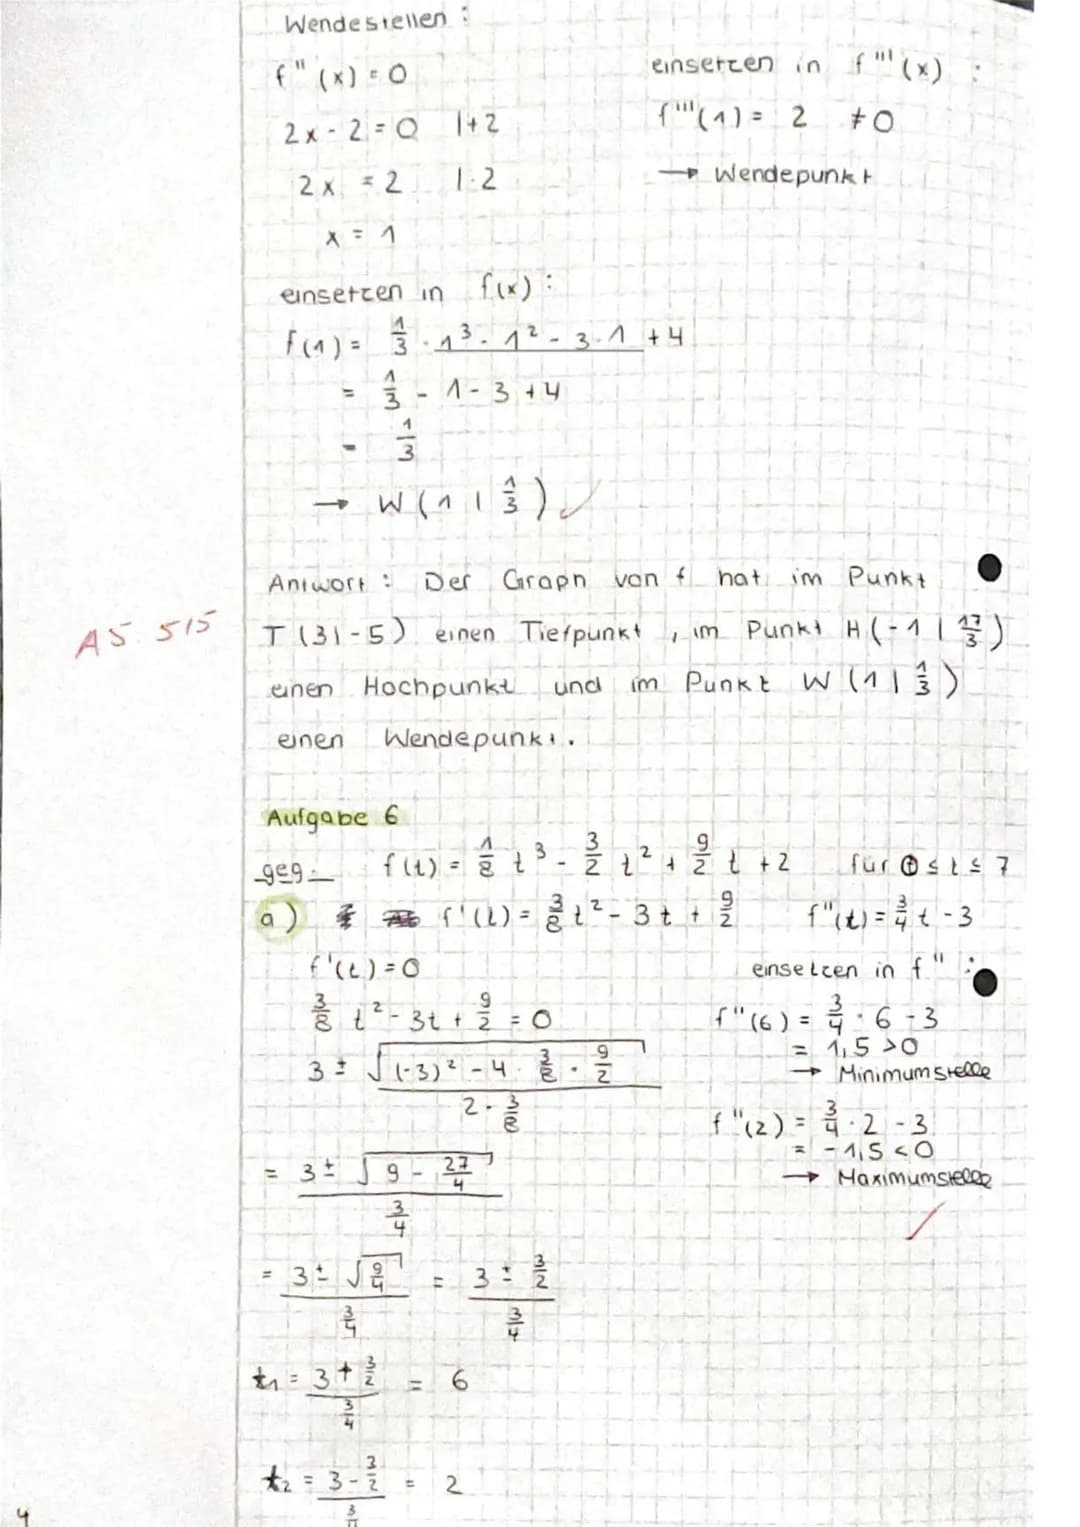 Wendestellen :
f''(x) = 0
2x - 2 = 0 |+2
2x = 2 |:2
x = 1
einsetzen in f'''(x) :
f'''(1) = 2 ≠ 0
→ Wendepunkt
einsetzen in f(x) :
f(1) = 1/3 · 1³ - 1² - 3·1 + 4
= 1/3 - 1 - 3 + 4
= 1/3
→ W (1 | 1/3) ✓
Antwort : Der Graph von f hat im Punkt
A5. 5/5
T (3|-5) einen Tiefpunkt , im Punkt H (-1 | 17/3)
einen Hochpunkt und im Punkt W (1 | 1/3)
einen Wendepunkt.
Aufgabe 6
geg.: f(t) = 1/8 t³ - 3/2 t² + 9/2 t + 2 für 0 ≤ t ≤ 7
a) f'(t) = 3/8 t² - 3t + 9/2 f''(t) = 3/4 t - 3
f'(t) = 0
3/8 t² - 3t + 9/2 = 0
(3 ± √((-3)² - 4 · 3/8 · 9/2)) / (2 · 3/8)
= (3 ± √(9 - 27/4)) / (3/4)
= (3 ± √(9/4)) / (3/4) = (3 ± 3/2) / (3/4)
t₁ = (3 + 3/2) / (3/4) = 6
t₂ = (3 - 3/2) / (3/4) = 2
einsetzen in f'' :
f''(6) = 3/4 · 6 - 3
= 1,5 > 0
→ Minimumstelle
f''(2) = 3/4 · 2 - 3
= -1,5 < 0
→ Maximumstelle
✓
4